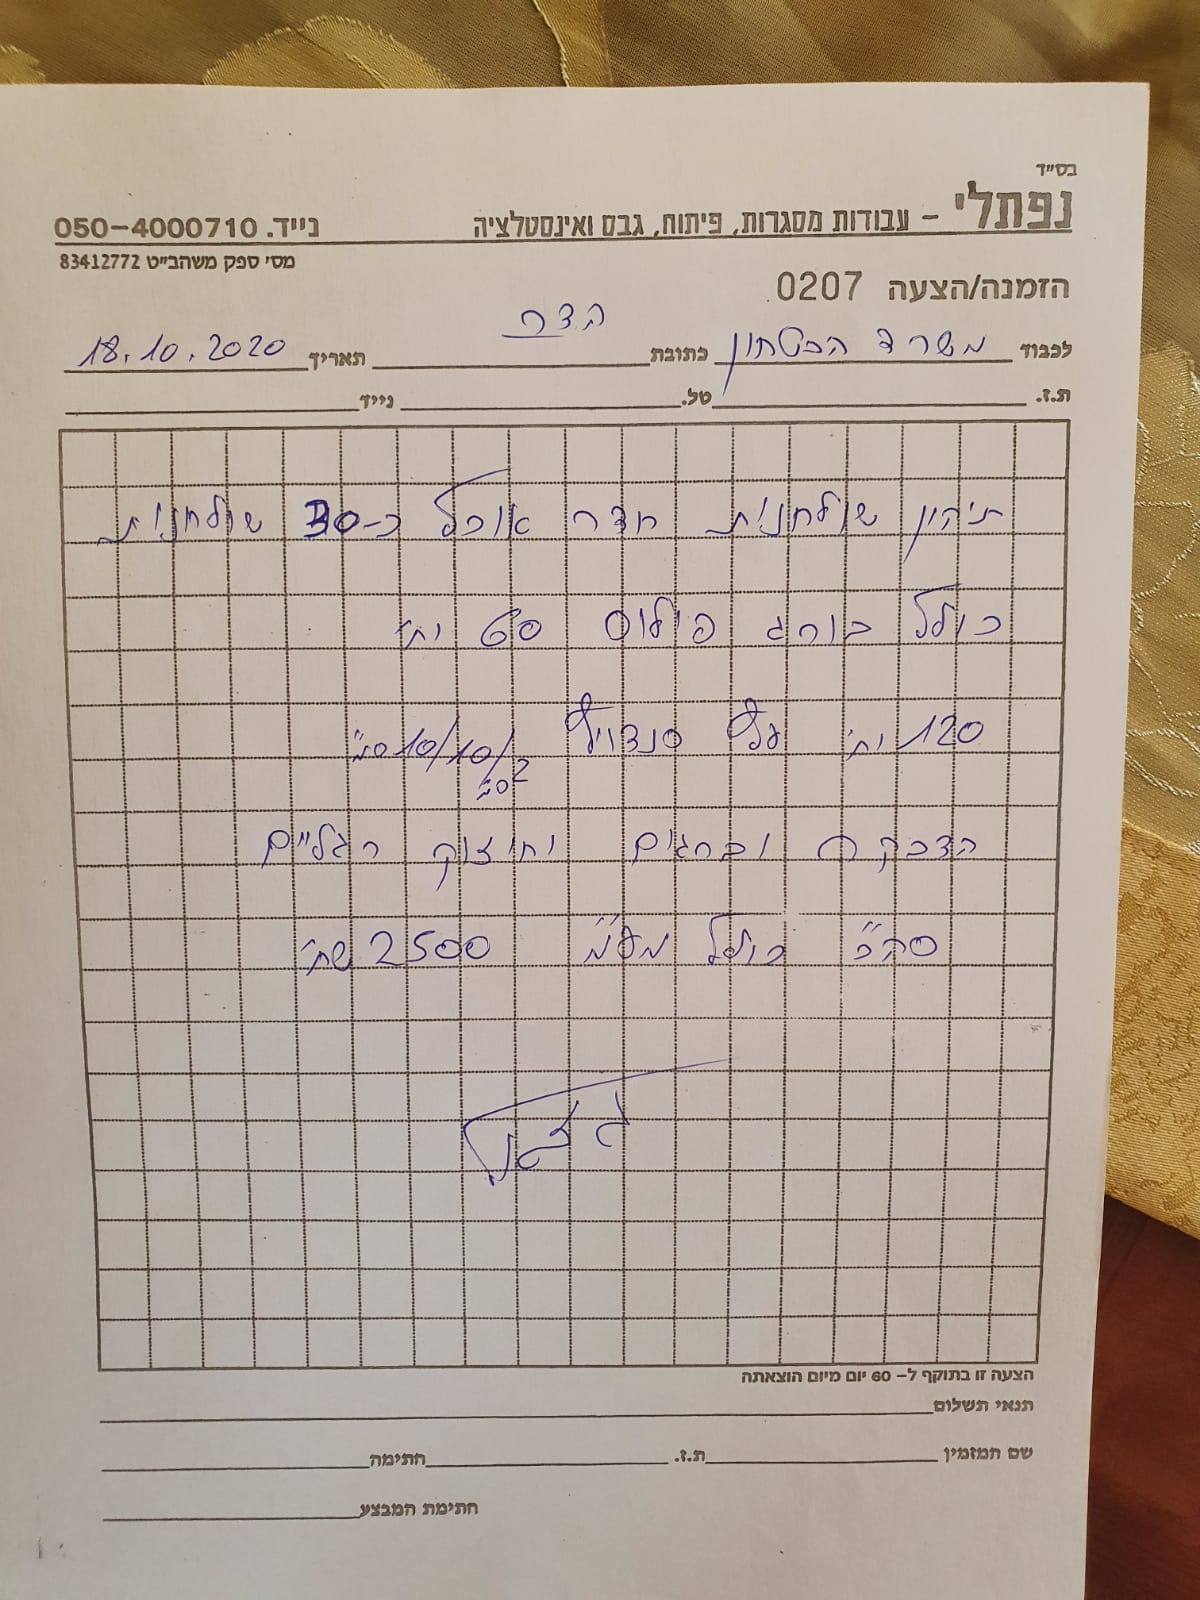 בס״ד
נפתלי - עבודות מסגרות, פיתוח, גבס ואינסטלציה נייד. 050-4000710
מס׳ ספק משהב״ט 83412772
הזמנה/הצעה 0207
לכבוד משרד הבטחון כתובת הצר תאריך 18.10.2020
ת.ז. טל. נייד
תיקון שולחנות חדר אוכל כ-30 שולחנות
כולל בורג פילוס 60 יח׳
120 יח׳ עץ סנדויץ 10/10/2 ס״מ
ס״מ
הדבקה וברגים וחיזוק רגליים
סה״כ כולל מע״מ 2500 שח׳
הצעה זו בתוקף ל- 60 יום מיום הוצאתה
תנאי תשלום
שם המזמין ת.ז. חתימה
חתימת המבצע